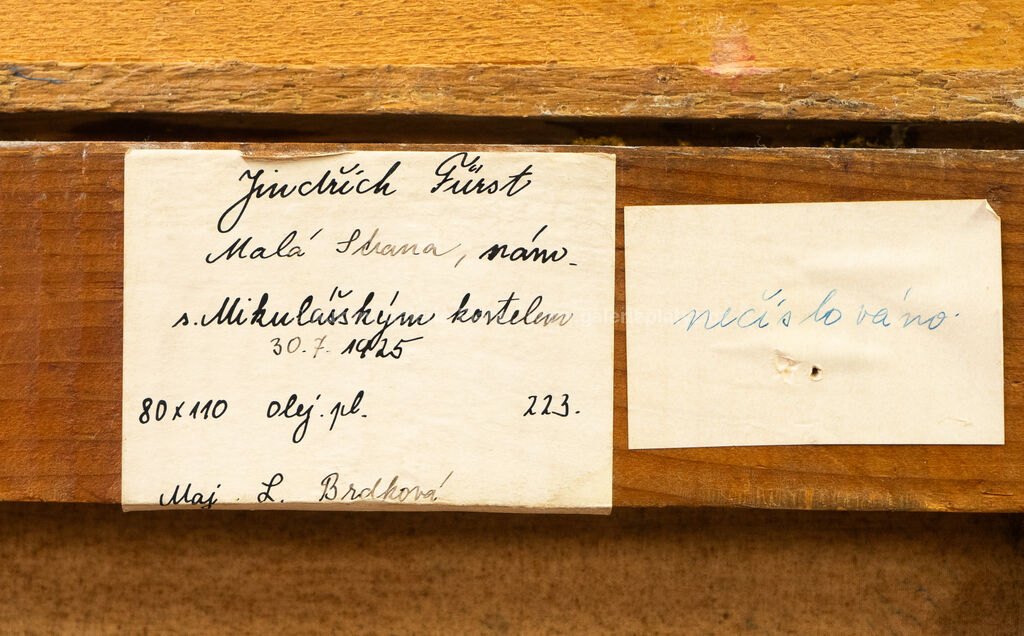 Jindřich Fürst
Malá Strana, nám.
s. Mikulášským kostelem
30.7. 1925
80x110 olej. pl. 223.
Maj. L. Brdková
nečíslováno.